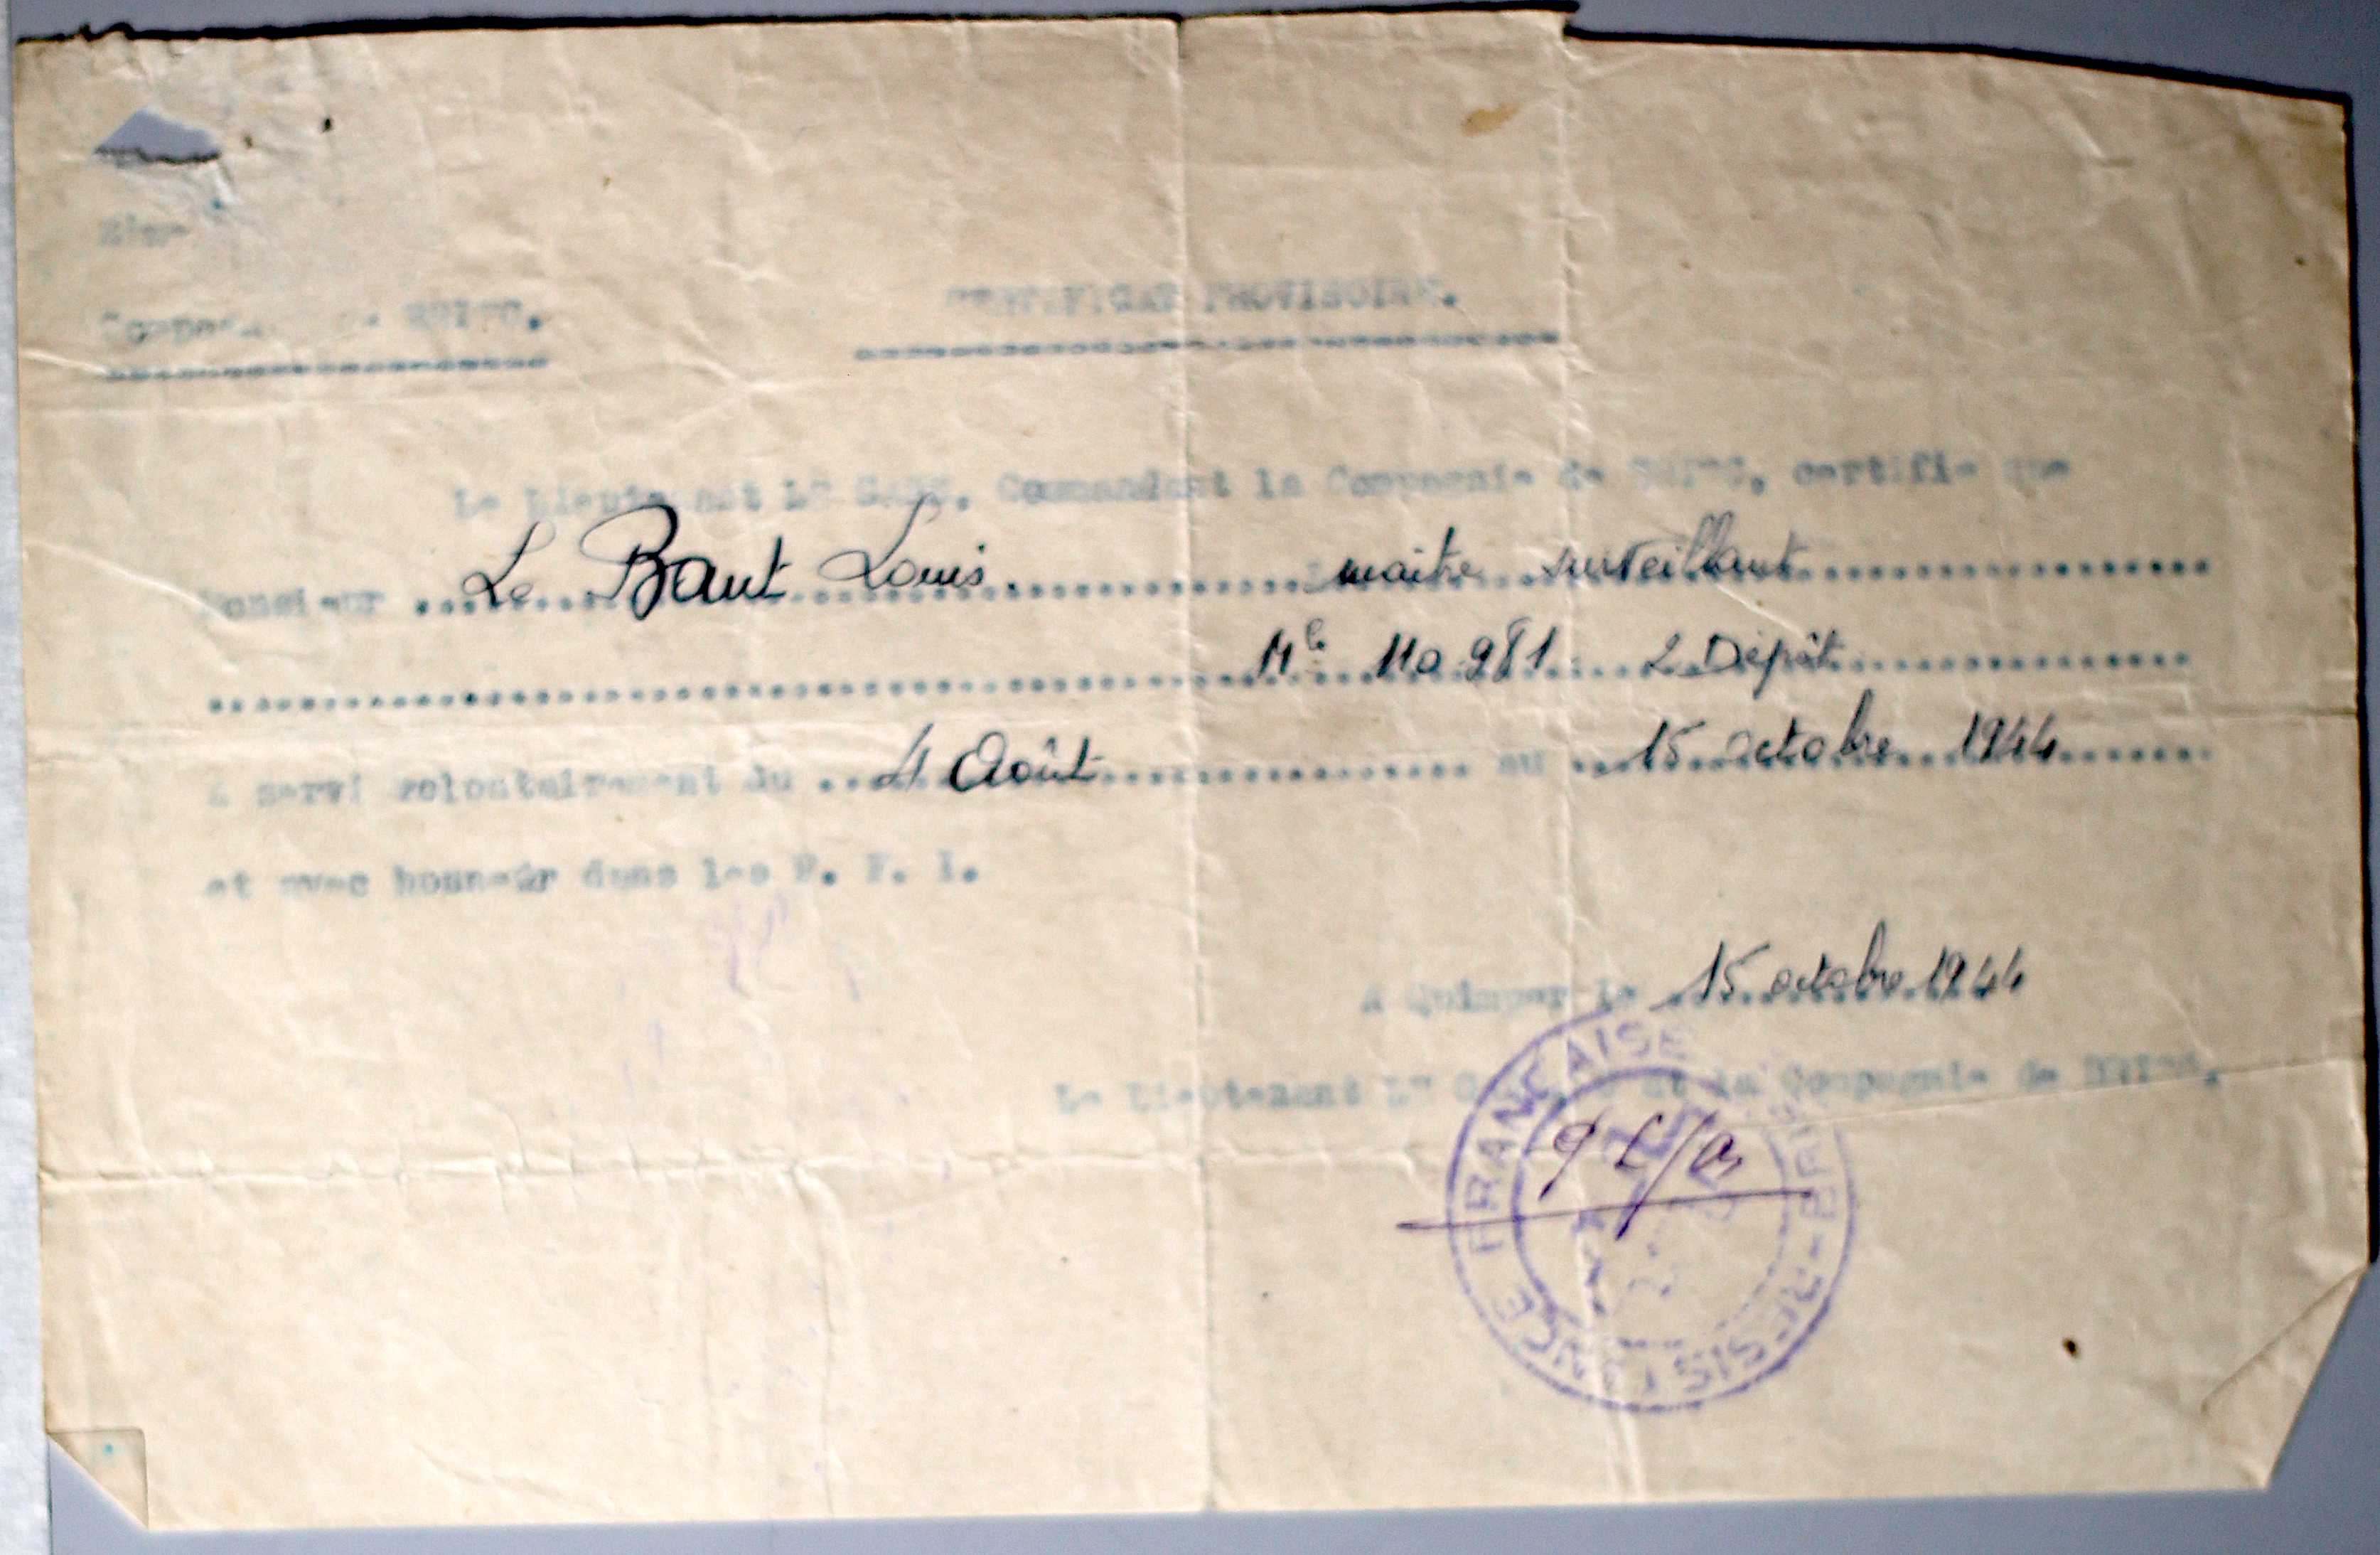 CERTIFICAT PROVISOIRE.
Le Lieutenant Commandant la Compagnie de certifie que
Monsieur Le Baut Louis maitre surveillant
Mle 110 981 2 Dépôt
A servi volontairement du 4 Août au 15 octobre 1944
et avec honneur dans les F. F. I.
A Quimper le 15 octobre 1944
Le Lieutenant la Compagnie de
RESISTANCE FRANCAISE